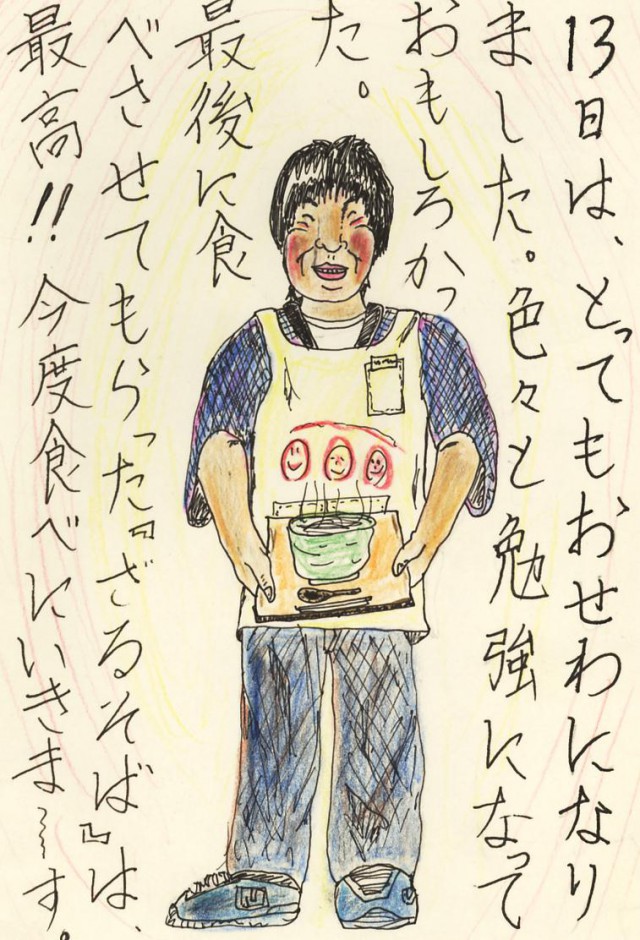 13日は、とってもおせわになり
ました。色々と勉強になって
おもしろかっ
た。
最後に食
べさせてもらった『ざるそば』は、
最高!!今度食べにいきま〜す。